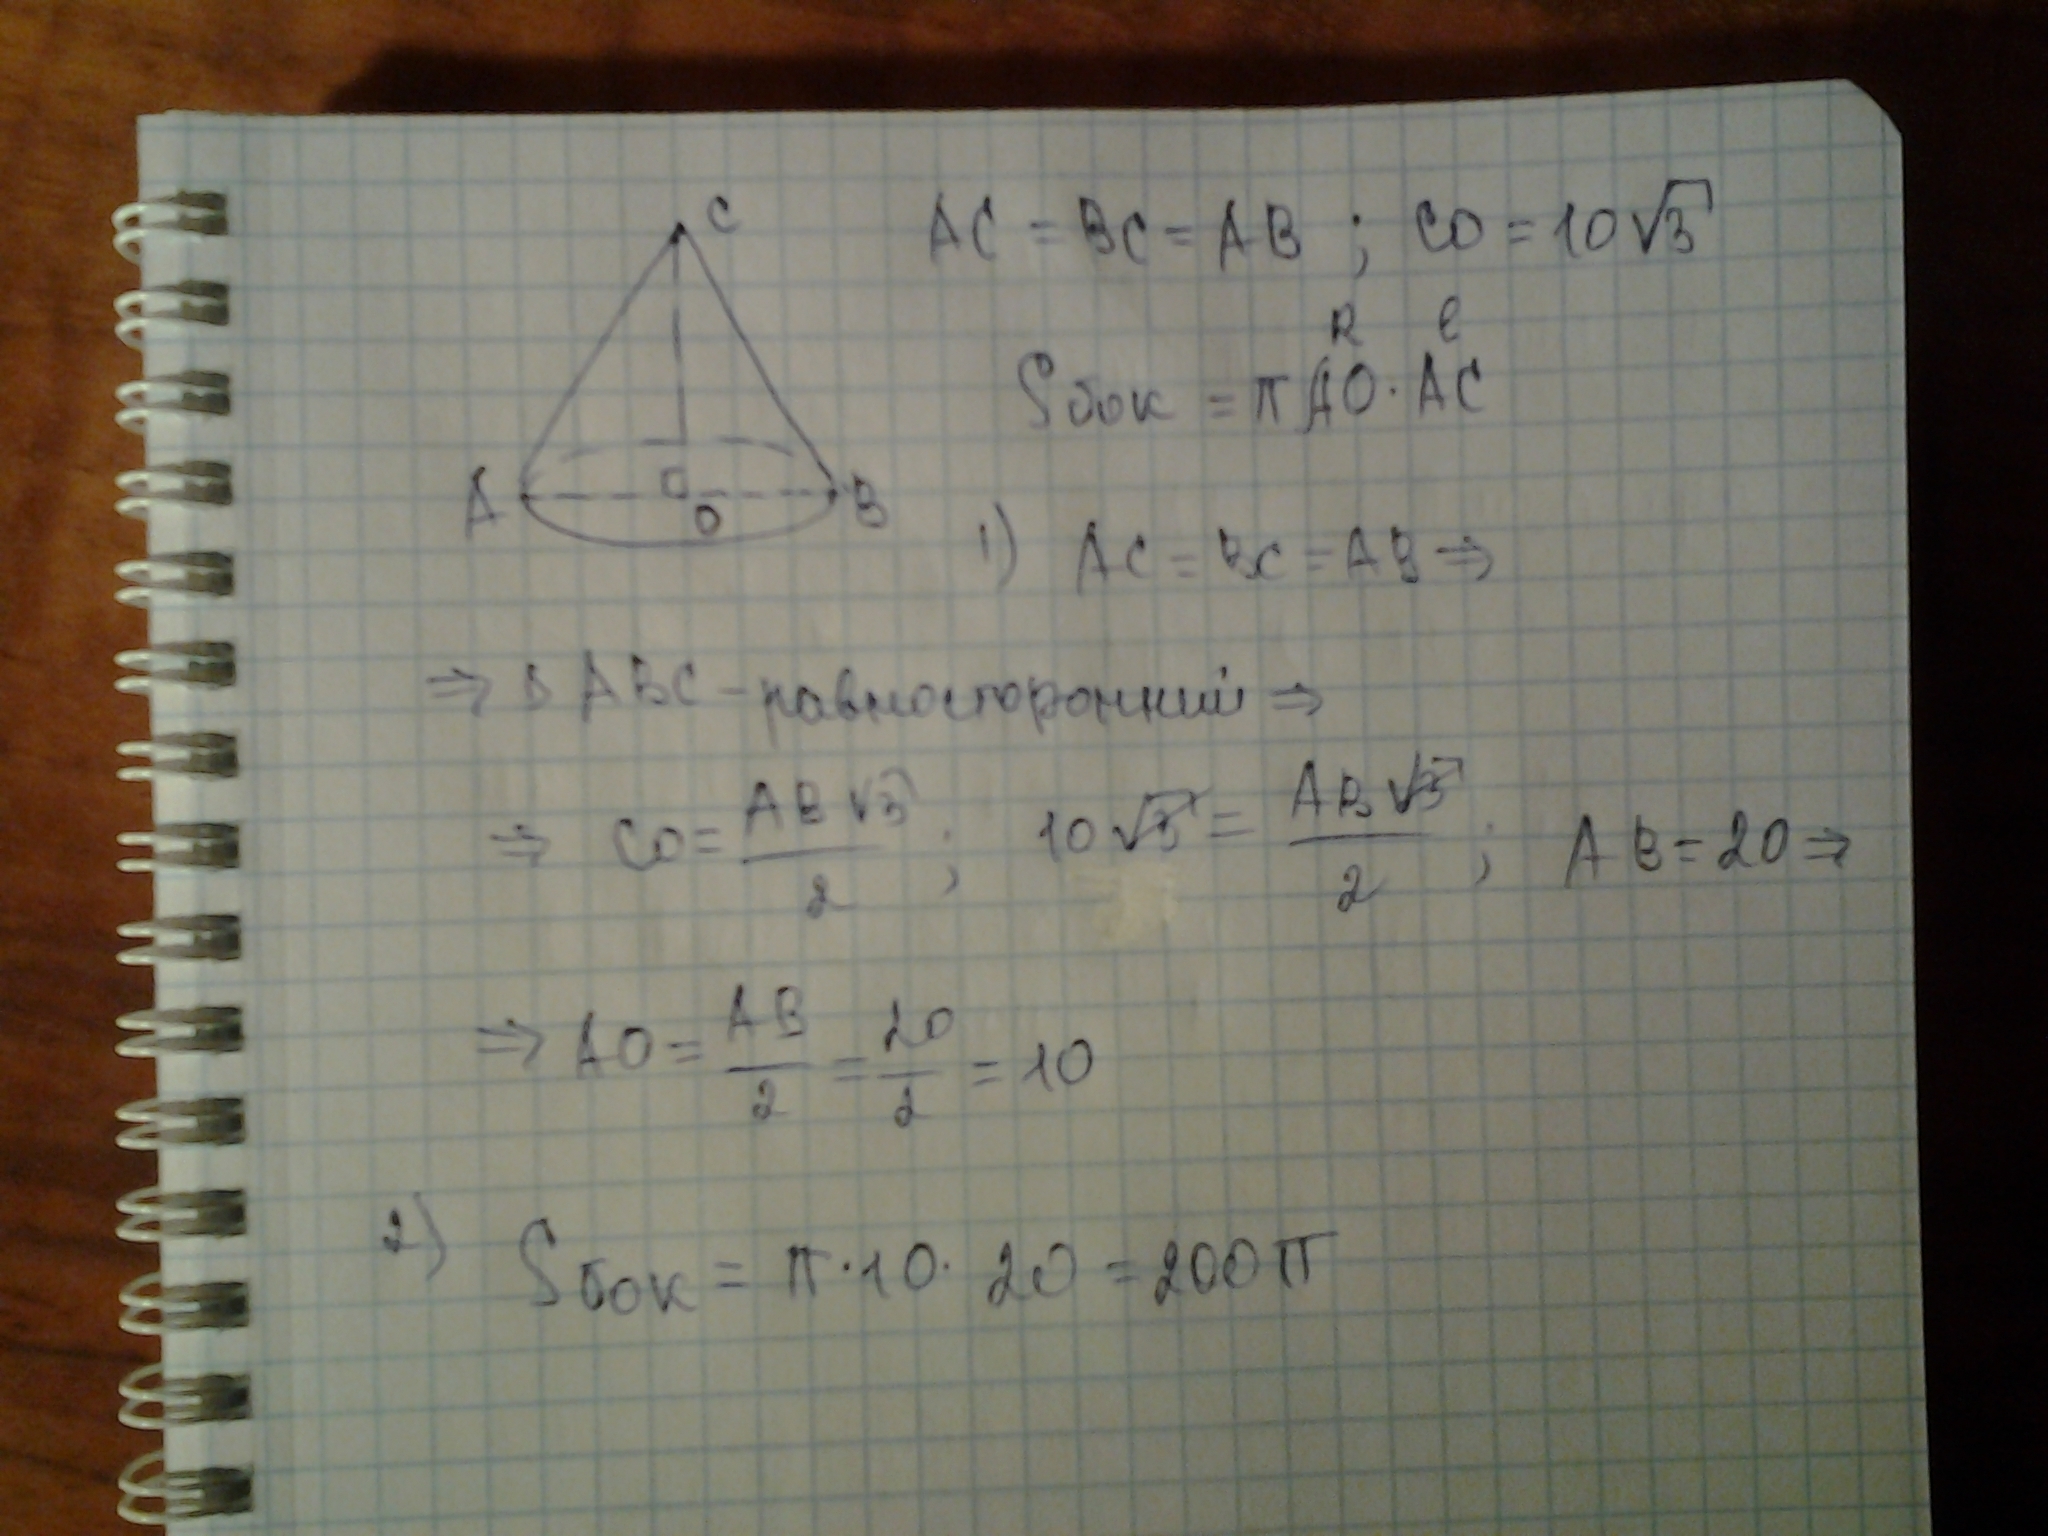 C
AC = BC = AB ; CO = 10√3
R l
Sбок = π AO · AC
A O B
1) AC = BC = AB ⇒
⇒ Δ ABC - равносторонний ⇒
⇒ CO = AB√3/2 ; 10√3 = AB√3/2 ; AB = 20 ⇒
⇒ AO = AB/2 = 20/2 = 10
2) Sбок = π · 10 · 20 = 200π